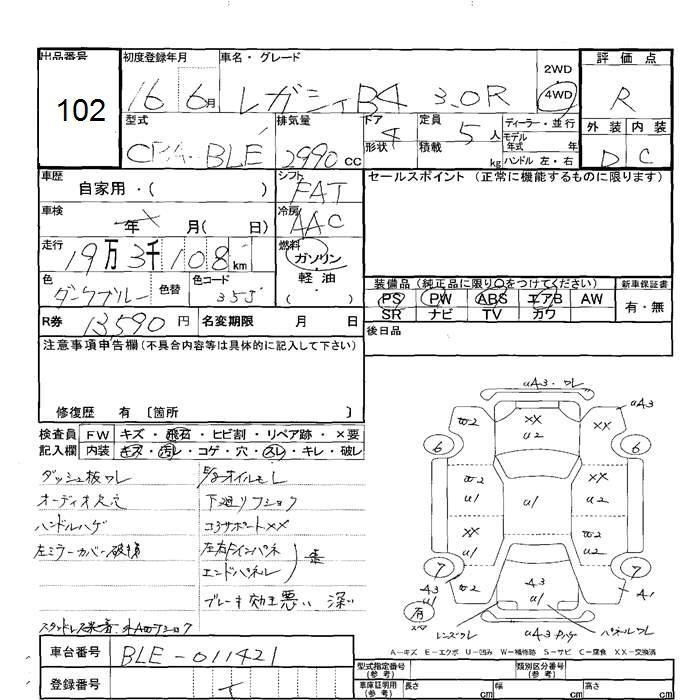 出品番号 初度登録年月 車名・グレード 2WD 評価点
102 16 6月 レガシィB4 3.0R 4WD R
型式 排気量 ドア 定員 ディーラー・並行 外装 内装
CBA-BLE 2990cc 4 5人 モデル年式 年 D C
形状 積載 kg ハンドル 左・右
車歴 自家用・( ) シフト FAT セールスポイント (正常に機能するものに限ります)
車検 年 月( 日) 冷房 AAC
走行 19万3千108km 燃料 ガソリン
軽・油
( )
色 ダークブルー 色替 色コード 35J
装備品(純正品に限り○をつけてください) 新車保証書
PS PW ABS エアB AW 有・無
SR ナビ TV カワ
R券 13,590円 名変期限 月 日
後日品
注意事項申告欄(不具合内容等は具体的に記入して下さい)
修復歴 有 〔箇所 〕
検査員 FW キズ・飛石・ヒビ割・リペア跡・×要
記入欄 内装 キズ・汚レ・コゲ・穴・スレ・キレ・破レ
ダッシュ板ワレ
オーディオ欠穴 下廻リフショク
ハンドルハゲ コアサポートXX
左ミラーカバー破損 左右Fインパネ
エンドパネル
ブレーキ効き悪い 深い
UA3・ワレ
UA3
W2 XX U2
6 6
W2 U1 XX
U1
XX U1 XX U2
7 7
W2 43 U1 W2 A1
有 スペア
レンズワレ UA3 パネルワレ
A-キズ E-エクボ U-凹み W-補修跡 S-サビ C-腐食 XX-交換済
車台番号 BLE-011421
登録番号
型式指定番号(参考) 類別区分番号(参考)
車庫証明用(参考) 長さ cm 幅 cm 高さ cm